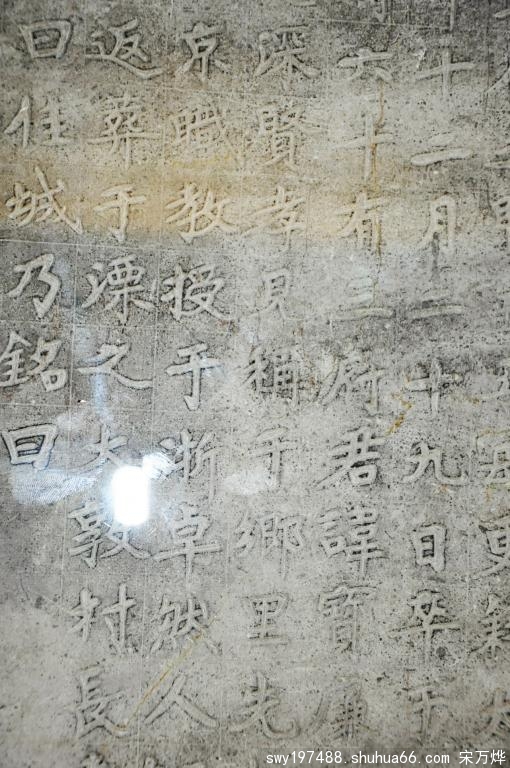 十二月二十九日卒于
六十有三府君諱寶
深賢孝見稱于鄉里先
京職教授于浙卓然人
返葬于溧之大敦村長
曰佳城乃銘曰
swy197488.shuhua66.com 宋万烨